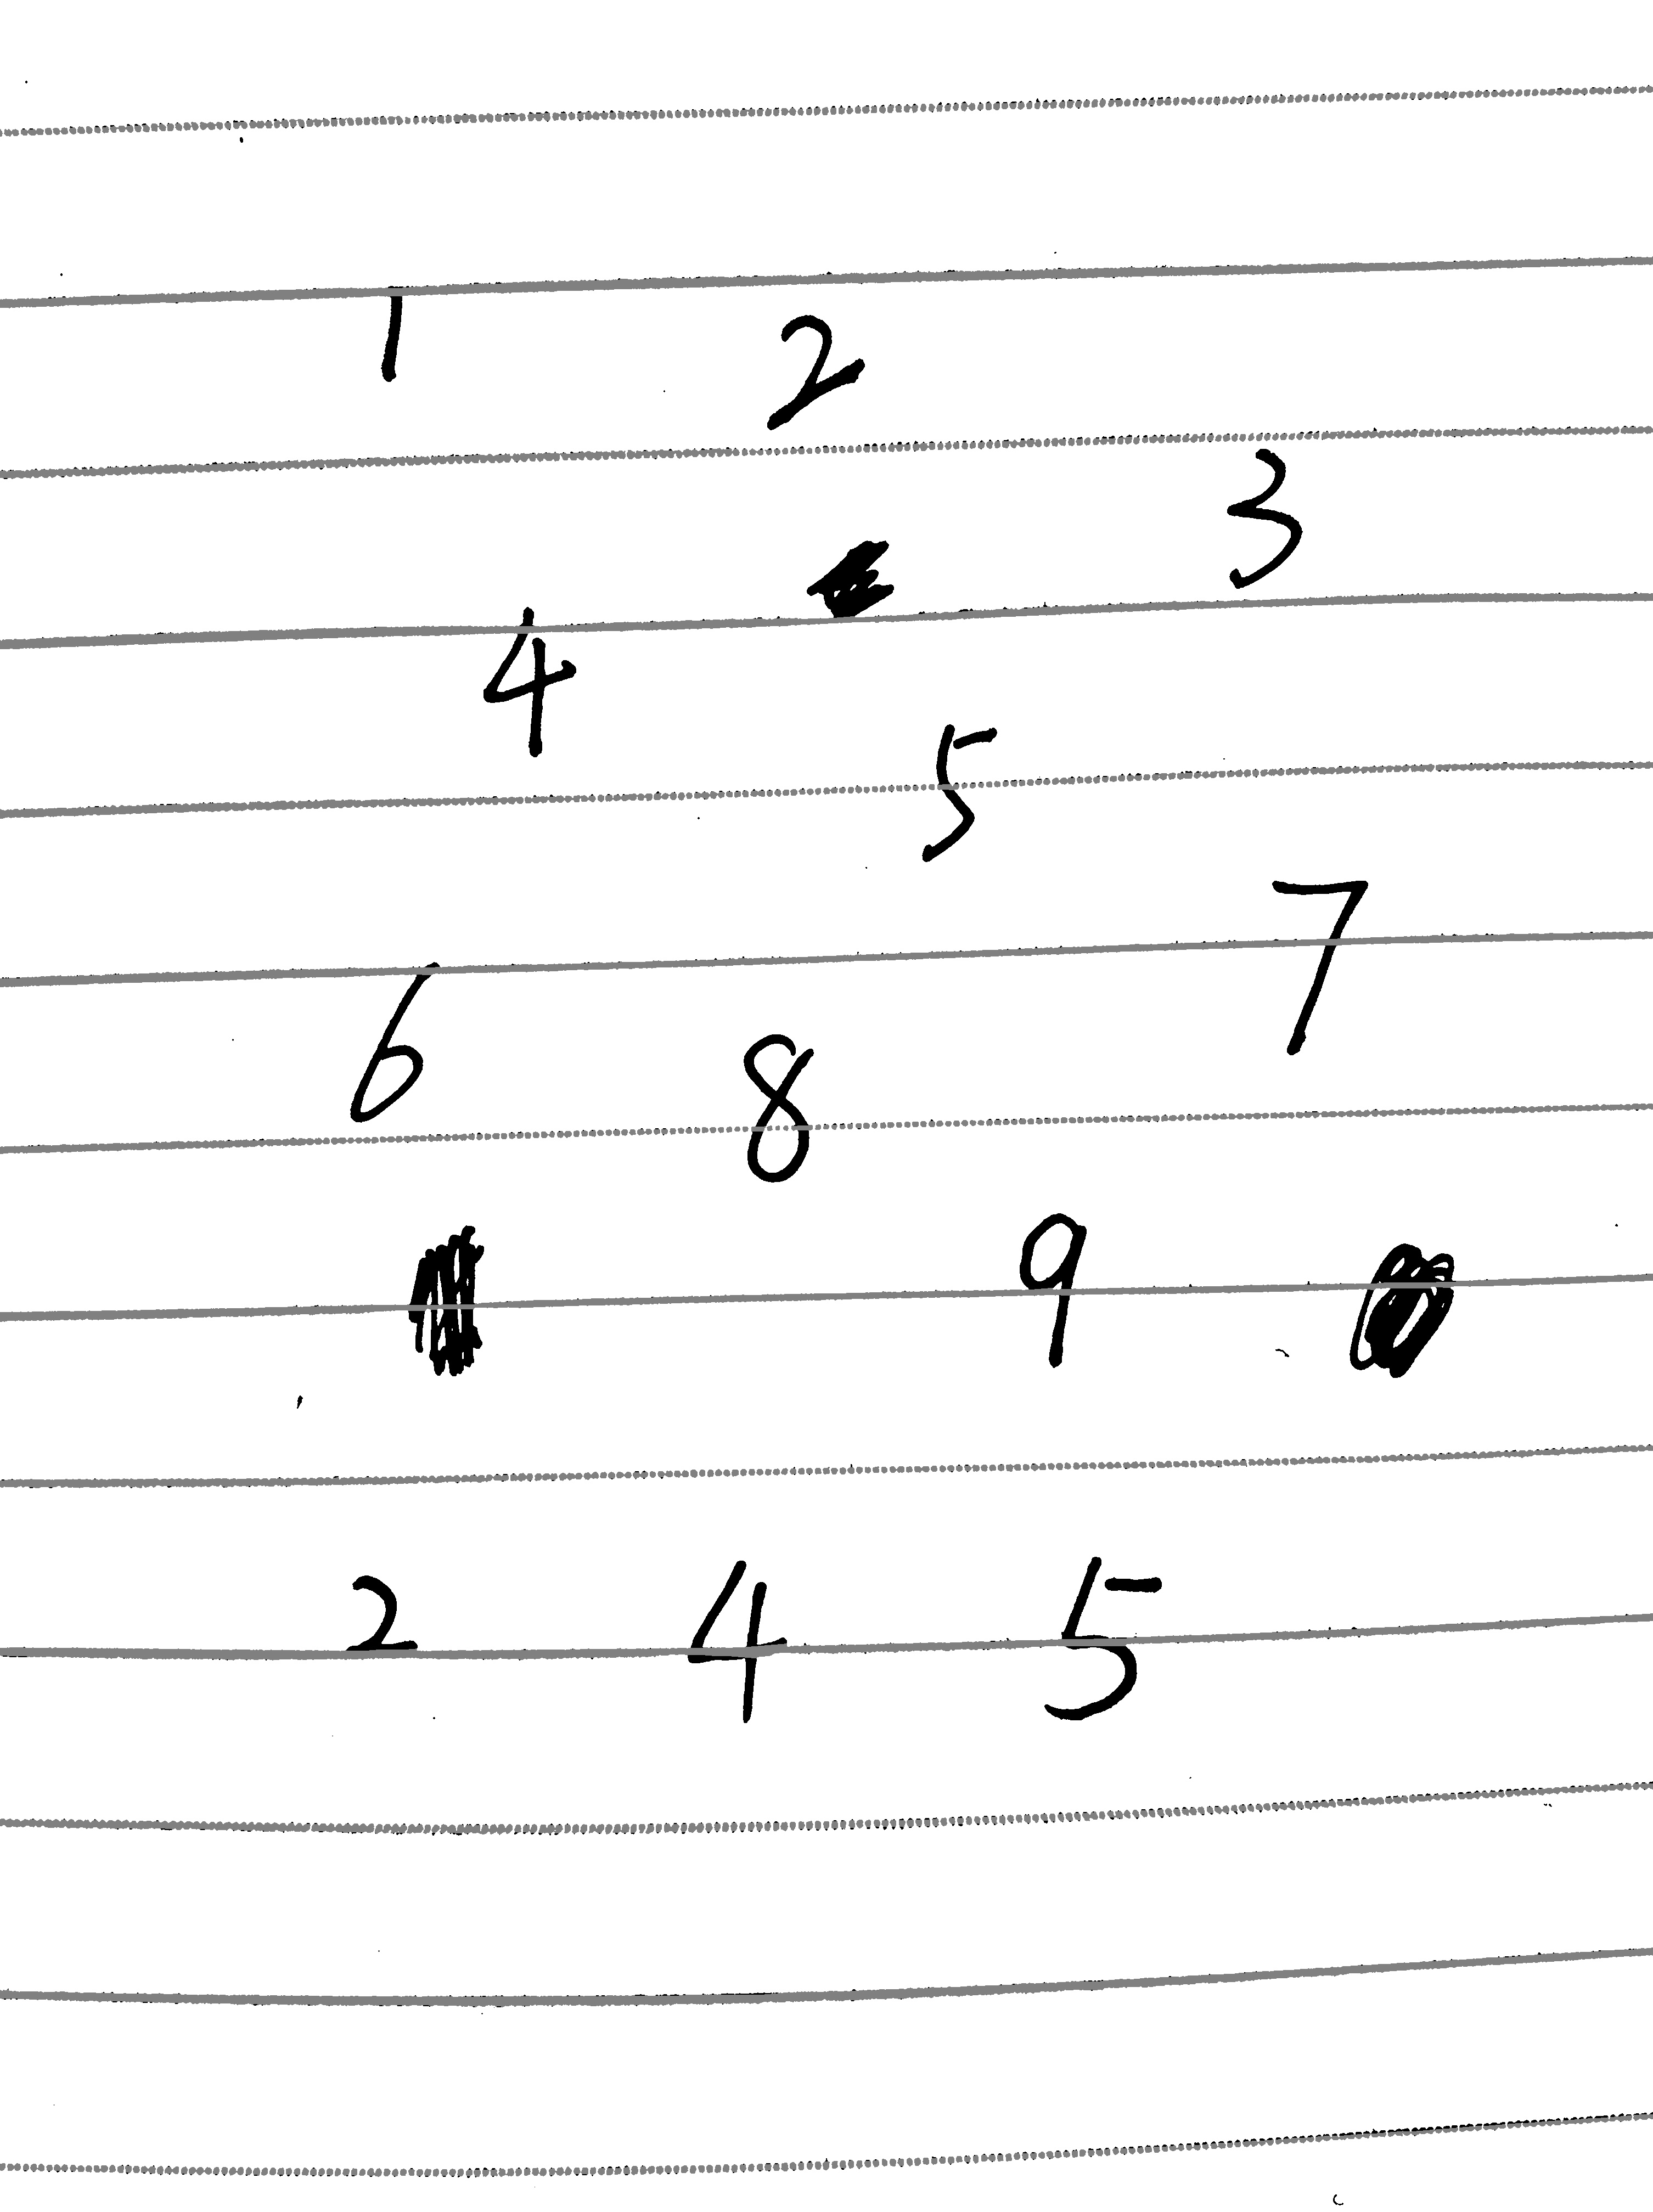 1 2
3
4
5
7
6 8
9
2 4 5